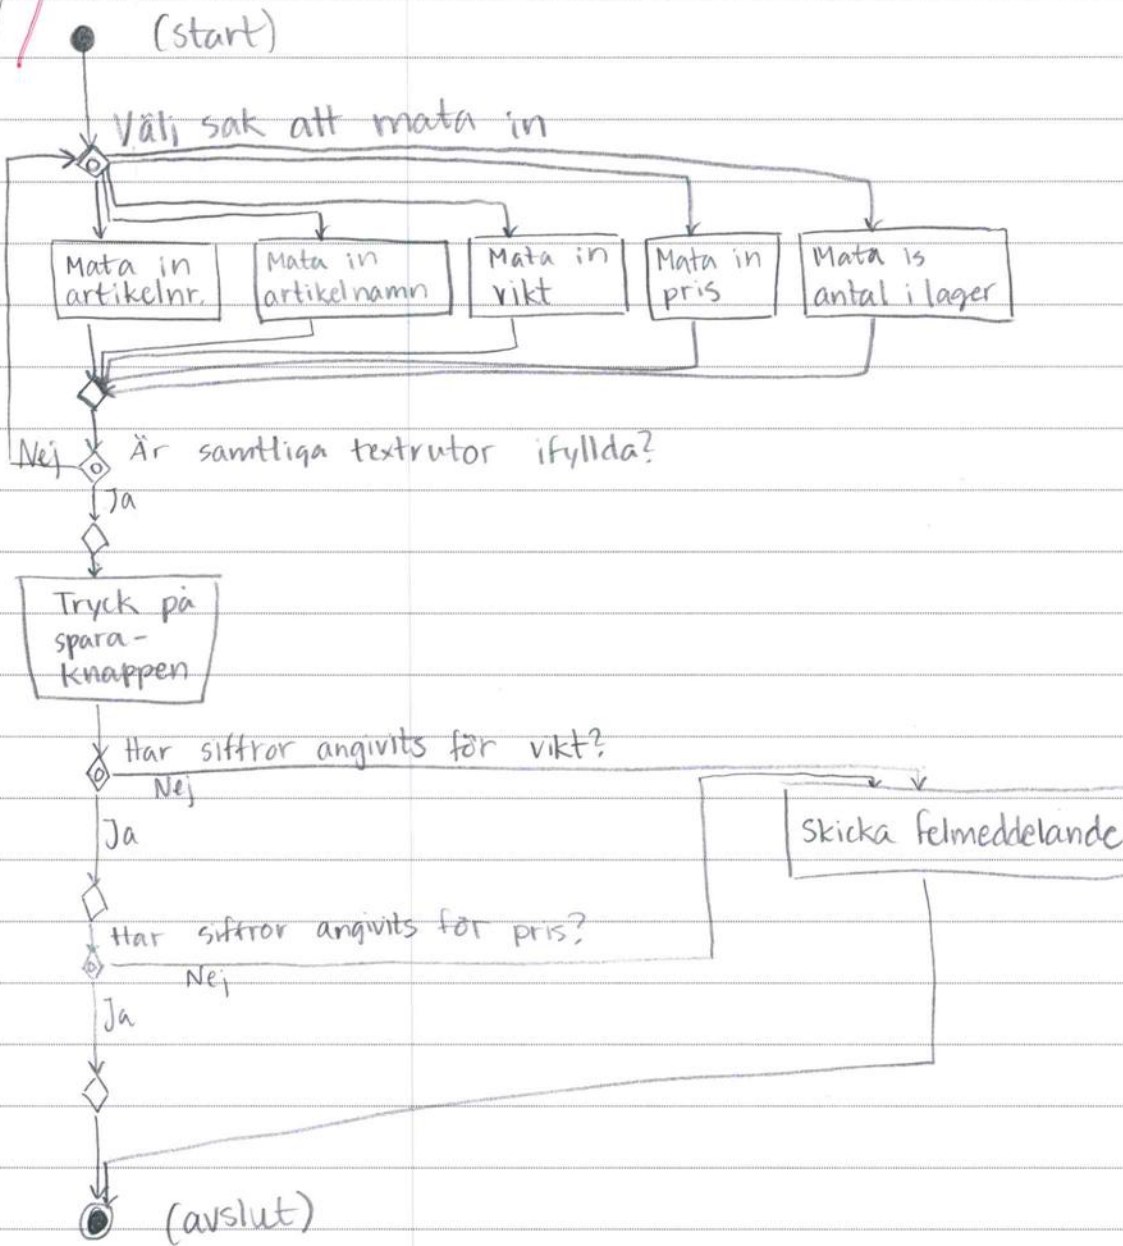 (start)
Välj sak att mata in
Mata in
artikelnr.
Mata in
artikelnamn
Mata in
vikt
Mata in
pris
Mata is
antal i lager
Nej
Är samtliga textrutor ifyllda?
Ja
Tryck på
spara-
knappen
Har siffror angivits för vikt?
Nej
Ja
Skicka felmeddelande
Har siffror angivits för pris?
Nej
Ja
(avslut)